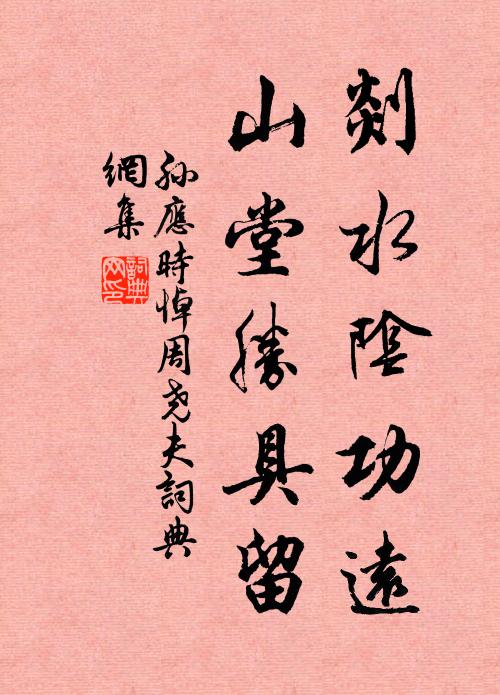 剡水陰功遠
山堂勝具留
孫應時悼周尧夫詞典
網集
詞典
网印